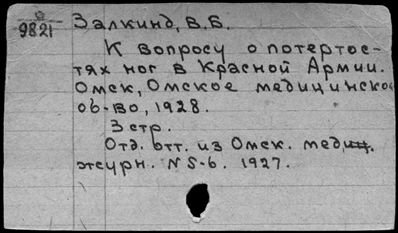 Залкинд, В.Б.
9821
К вопросу о потертос-
тях ног в Красной Армии.
Омск, Омское медицинско
об-во, 1928.
3 стр.
Отд. отт. из Омск. медиц.
журн. N 5-6. 1927.